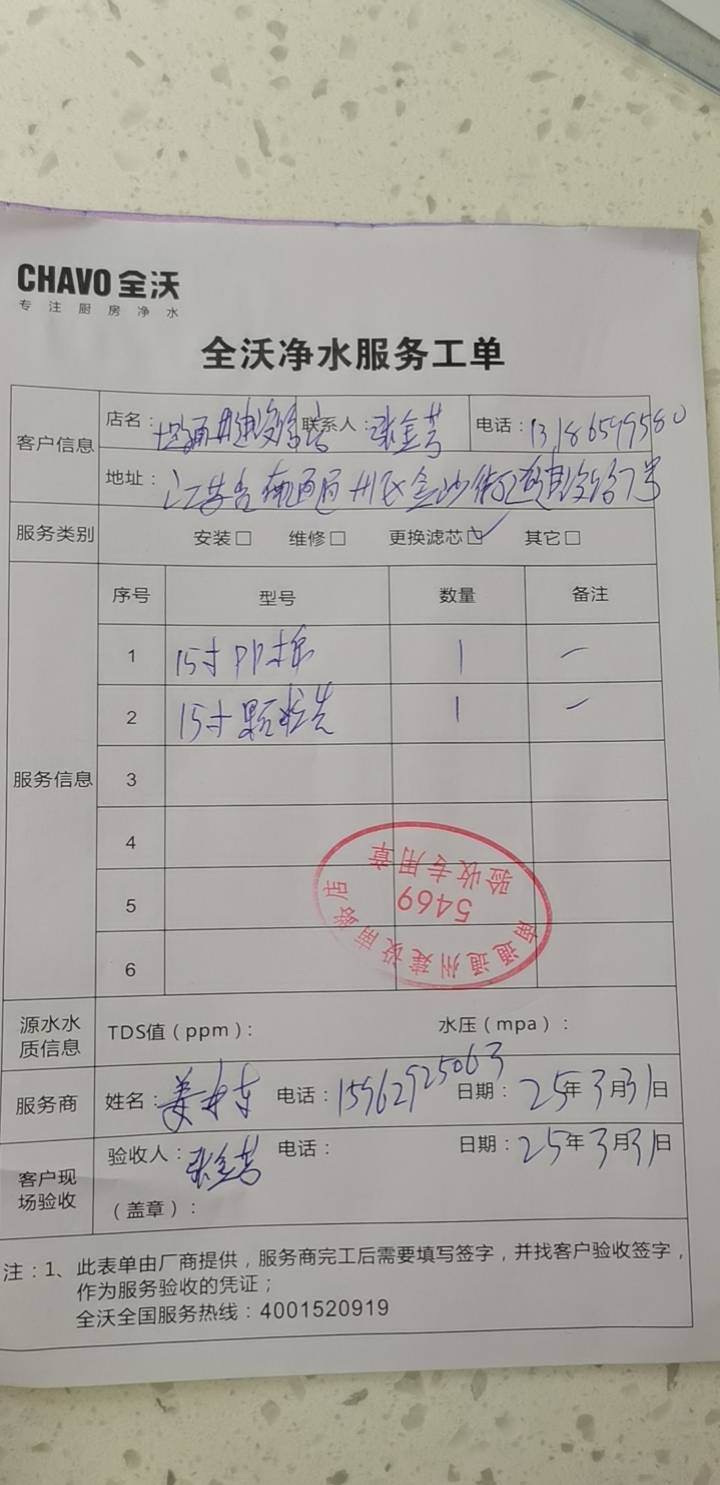 CHAVO 全沃
专注厨房净水
全沃净水服务工单
客户信息
店名： 联系人：张金芳 电话：13186599580
地址：江苏省南通通州区金沙街道建设路7号
服务类别 安装□ 维修□ 更换滤芯☑ 其它□
服务信息
序号 型号 数量 备注
1 15寸PP棉 1 一
2 15寸颗粒炭 1 一
3
4
5
6
南通通州建设南路店
5469
验收专用章
源水水质信息 TDS值（ppm）： 水压（mpa）：
服务商 姓名： 电话：15962925063 日期：25年3月31日
客户现场验收 验收人：张金芳 电话： 日期：25年3月31日
（盖章）：
注：1、此表单由厂商提供，服务商完工后需要填写签字，并找客户验收签字，
作为服务验收的凭证；
全沃全国服务热线：4001520919